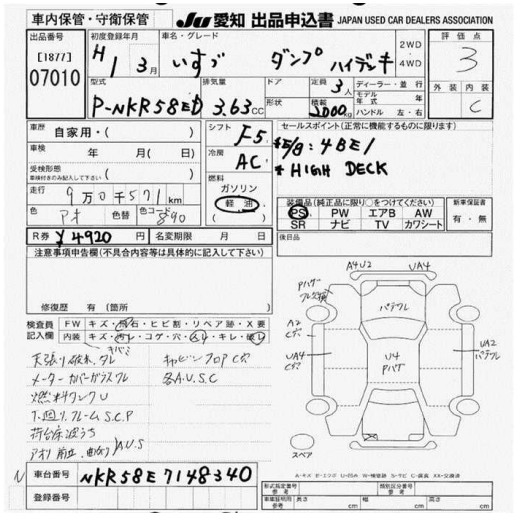 車内保管・守衛保管
JU 愛知 出品申込書 JAPAN USED CAR DEALERS ASSOCIATION
出品番号
[1877]
07010
初度登録年月
H 1 3月
車名・グレード
いすゞ ダンプ ハイデッキ
2WD
・
4WD
評価点
3
外装 内装
C
型式
P-NKR58ED
排気量
3.63CC
ドア
形状
定員 3人
積載 2000kg
ディーラー・並行
モデル
年式 年
ハンドル 左・右
車歴
自家用・( )
車検
年 月( 日)
受検形態
車検付きのみ記入して下さい ( )
走行
9万0千571km
色
アオ
色替
色コード
890
シフト
F5
冷房
AC
燃料
ガソリン
軽油
セールスポイント(正常に機能するものに限ります)
*E/g:4BE1
* HIGH DECK
装備品(純正品に限り○をつけてください)
PS PW エアB AW
SR ナビ TV カワシート
新車保証書
有・無
後日品
R券 ¥4920円
名変期限 月 日
注意事項申告欄(不具合内容等は具体的に記入して下さい)
修復歴 有 (箇所 )
検査員
記入欄
FW キズ・飛石・ヒビ割・リペア跡・X要
内装 キズ・汚レ・コゲ・穴・スレ・キレ・破レ
天張り破れ、タレ
メーターカバーガラスワレ
燃料タンクU
下回り、フレームS.C.P
荷台床波うち
キャビンフロアC穴
各A.U.S.C
A.U.S
A4U2
UA4
A2
UA4
C穴
U4
Pハゲ
UA2
スペア
A-キズ E-エクボ U-凹み W-補修跡 S-サビ C-腐食 XX-交換済
車台番号 NKR58E7148340
登録番号
形式指定番号
参考
類別区分番号
参考
車庫証明用
参考
長さ cm
幅 cm
高さ cm